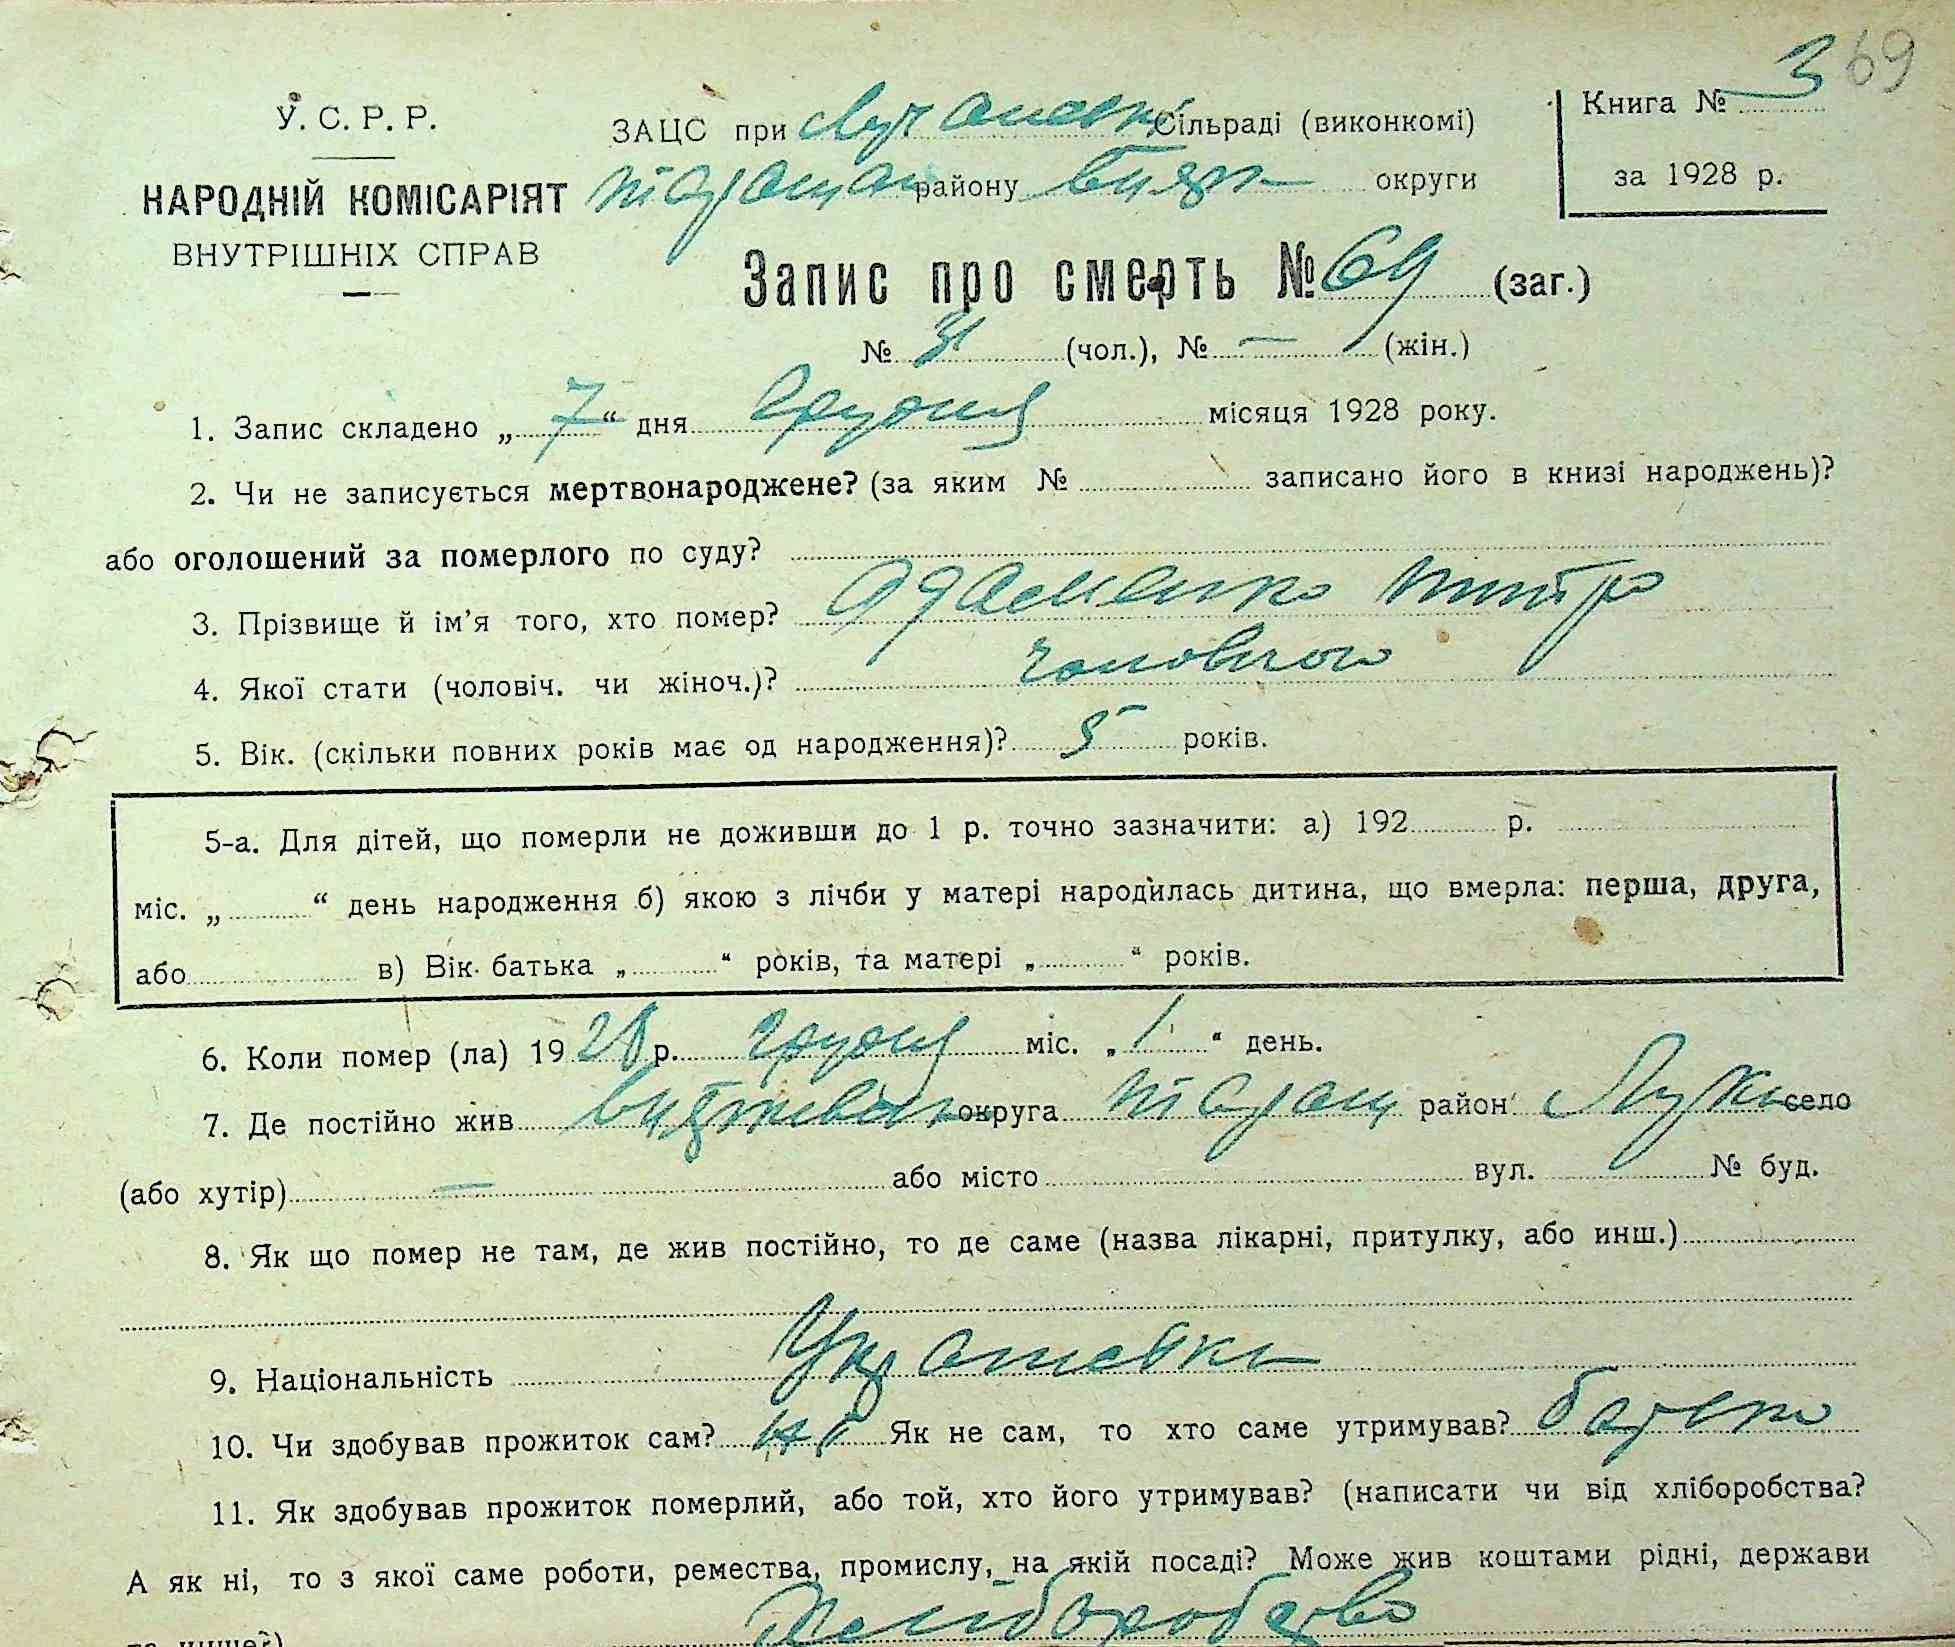 69
У. С. Р. Р.
НАРОДНІЙ КОМІСАРІЯТ
ВНУТРІШНІХ СПРАВ
ЗАЦС при Лучанські Сільраді (виконкомі)
району округи
Книга № 3
за 1928 р.
Запис про смерть № 69 (заг.)
№ 31 (чол.), № — (жін.)
1. Запис складено „ 7 “ дня Грудня місяця 1928 року.
2. Чи не записується мертвонароджене? (за яким № записано його в книзі народжень)?
або оголошений за померлого по суду?
3. Прізвище й ім’я того, хто помер? Адаменко
4. Якої стати (чоловіч. чи жіноч.)? чоловічої
5. Вік. (скільки повних років має од народження)? 5 років.
5-а. Для дітей, що померли не доживши до 1 р. точно зазначити: а) 192 р.
міс. „ “ день народження б) якою з лічби у матері народилась дитина, що вмерла: перша, друга,
або в) Вік батька „ “ років, та матері „ “ років.
6. Коли помер (ла) 1928 р. грудня міс. „ 1 “ день.
7. Де постійно жив округа Таращ район село
(або хутір) — або місто вул. № буд.
8. Як що помер не там, де жив постійно, то де саме (назва лікарні, притулку, або инш.)
9. Національність
10. Чи здобував прожиток сам? ні Як не сам, то хто саме утримував? батько
11. Як здобував прожиток померлий, або той, хто його утримував? (написати чи від хліборобства?
А як ні, то з якої саме роботи, ремества, промислу, на якій посаді? Може жив коштами рідні, держави
та инше?) Хліборобство